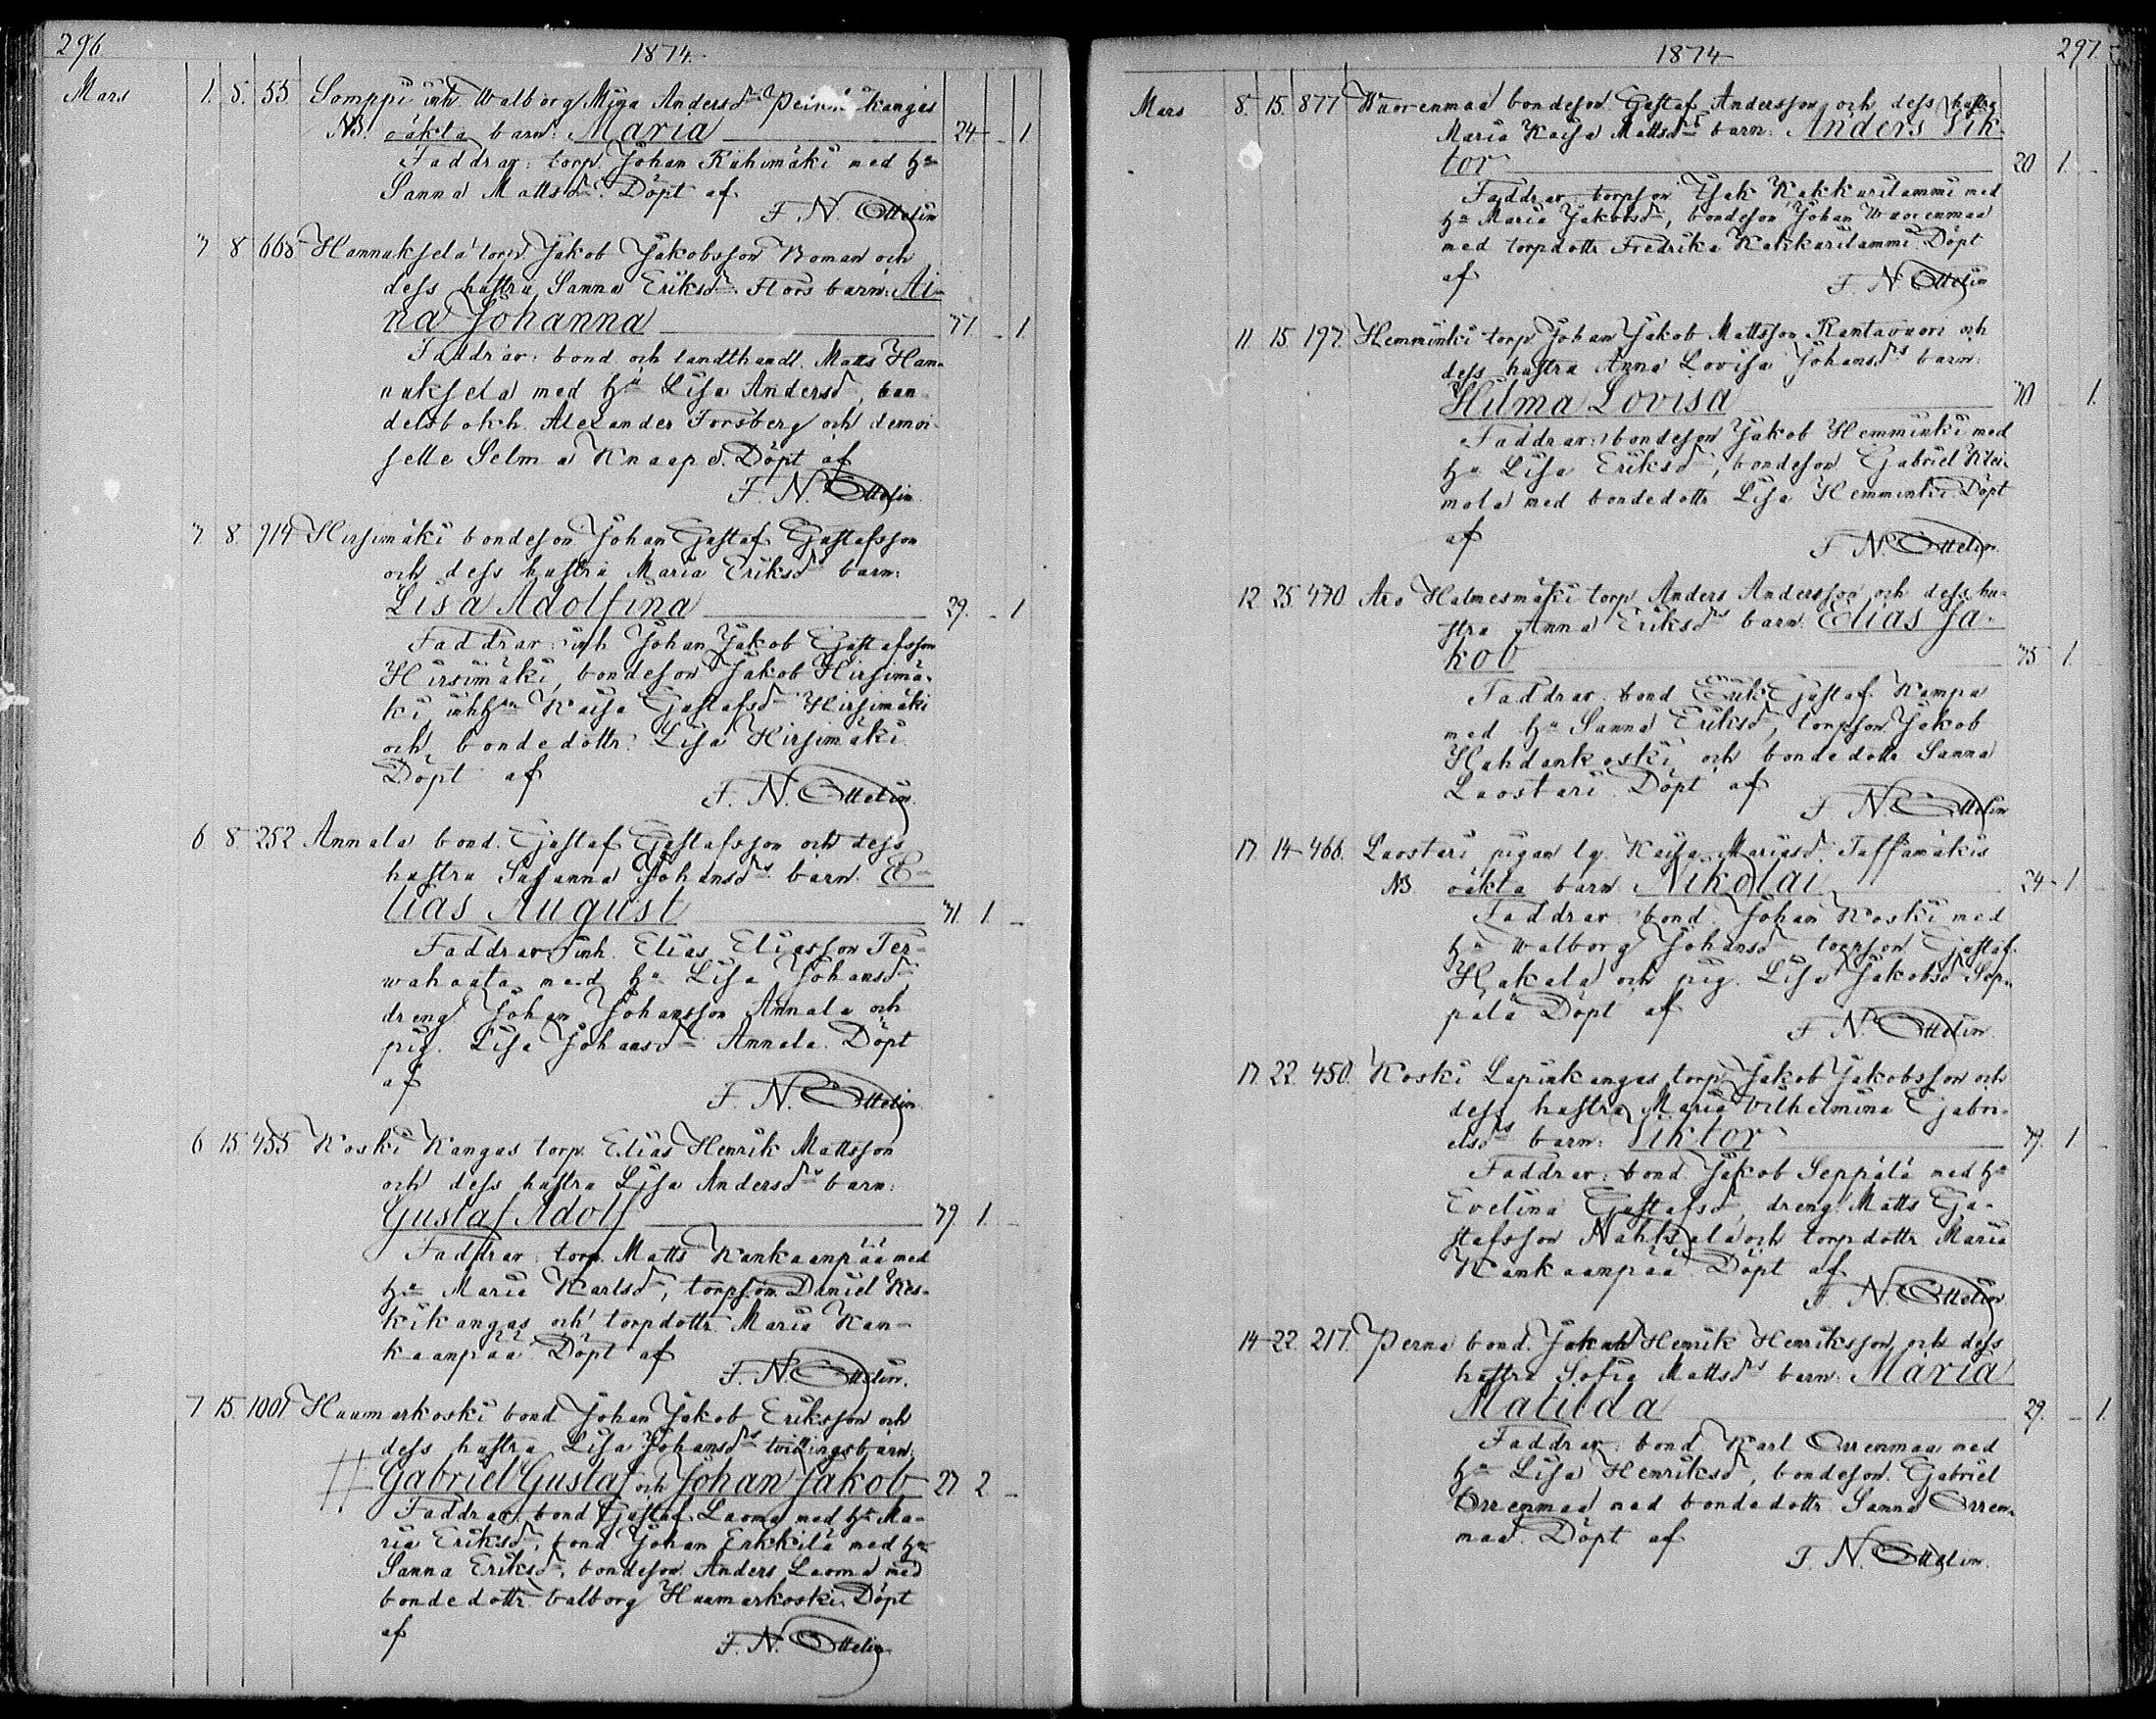 296.
1874.
Mars 1. 5. 55 Somppi inh. Walborg Miña Andersdr
NB. oäkta barn: Maria 24 - 1.
Faddrar: torp. Johan Riihimäki med hu
Sanna Mattsdr. Döpt af
F. N. Ottelin
7 8 668 Hannuksela torp. Jakob Jakobsson Roman och
dess hustru Sanna Eriksdr. Flors barn: Ai-
na Johanna 77. - 1.
Faddrar: bond. och landthandl. Matts Han-
nuksela med hu Lisa Andersdr, han-
delsbokh. Alexander Forsberg och demoi-
selle Selma Knaape. Döpt af
F. N. Ottelin
7 8. 914 Hirsimäki bondeson Johan Gustaf Gustafsson
och dess hustru Maria Eriksdrs barn:
Lisa Adolfina 29. - 1
Faddrar: inh Johan Jakob Gustafsson
Hirsimäki, bondeson Jakob Hirsimä-
ki, inhhun Kaisa Gustafsdr Hirsimäki
och bondedottr. Lisa Hirsimäki
Döpt af
F. N. Ottelin.
6 8. 252 Annala bond. Gustaf Gustafsson och dess
hustru Susanna Johansdrs barn: E-
lias August 71. 1. -
Faddrar: inh. Elias Eliasson Ter-
wahauta med hu Lisa Johansdr
dreng Johan Johansson Annala och
pig. Lisa Johansdr Annala. Döpt
af
F. N. Ottelin.
6 15. 455 Koski Kangas torp. Elias Henrik Mattsson
och dess hustru Lisa Andersdrs barn:
Gustaf Adolf 79. 1. -
Faddrar: torp. Matts Kankaanpää med
hu Maria Karlsdr, torpson Daniel Kes-
kikangas och torpdottr. Maria Kan-
kaanpää. Döpt af
F. N. Ottelin.
7. 15. 1001 Haumarkoski bond Johan Jakob Eriksson och
dess hustru Lisa Johansdrs tvillingsbarn:
Gabriel Gustaf och Johan Jakob 27 2 -
Faddrar: bond Gustaf Luoma med hu Ma-
ria Eriksdr, bond Johan Erkkilä med hu
Sanna Eriksdr, bondeson Anders Luoma med
bondedottr. Valborg Haumarkoski. Döpt
af
F. N. Ottelin
1874
297.
Mars 8. 15. 877 Wuorenmaa bondeson Gustaf Andersson och dess hustru
Maria Kaisa Mattsdrs barn: Anders Vik-
tor 20 1. -
Faddrar: torpson Isak Kakkurilammi med
hu Maria Jakobsdr, bondeson Johan Wuorenmaa
med torpdottr Fredrika Kakkurilammi Döpt
af
F. N. Ottelin
11. 15. 197. Hemminki torp Johan Jakob Mattsson Rantavuori och
dess hustru Anna Lovisa Johansdrs barn:
Hilma Lovisa 70 - 1.
Faddrar: bondeson Jakob Hemminki med
hu Lisa Eriksdr, bondeson Gabriel Klei-
mola med bondedottr. Lisa Hemminki. Döpt
af
F. N. Ottelin.
12. 25. 470. Aro Halmesmäki torp Anders Andersson och dess hu-
stru Anna Eriksdrs barn: Elias Ja-
kob 75 1. -
Faddrar: bond Erik Gustaf Kampa
med hu Sanna Eriksdr, torpson Jakob
Hahdonkoski och bondedottr Sanna
Luostari. Döpt af
F. N. Ottelin
17. 14 466. Luostari pigan lg. Kaisa Mariasdr
NB. oäkta barn Nikolai 24 1 -
Faddrar: bond. Johan Koski med
hu Walborg Johansdr torpson Gustaf
Hakala och pig. Lisa Jakobsdr Sep-
pälä Döpt af
F. N. Ottelin.
17. 22. 450. Koski Lapinkangas torp Jakob Jakobsson och
dess hustru Maria Vilhelmina Gabri-
elsdrs barn: Viktor 79. 1. -
Faddrar: bond. Jakob Seppälä med hu
Evelina Gustafsdr, dreng Matts Gu-
stafsson Nahkala och torpdottr Maria
Kankaanpää. Döpt af
F. N. Ottelin
14 22. 217. Perna bond. Jakob Henrik Henriksson och dess
hustru Sofia Mattsdrs barn: Maria
Matilda 29. - 1.
Faddrar: bond. Karl Orrenmaa med
hu Lisa Henriksdr, bondeson. Gabriel
Orrenmaa med bondedottr Sanna Orren-
maa. Döpt af
F. N. Ottelin.